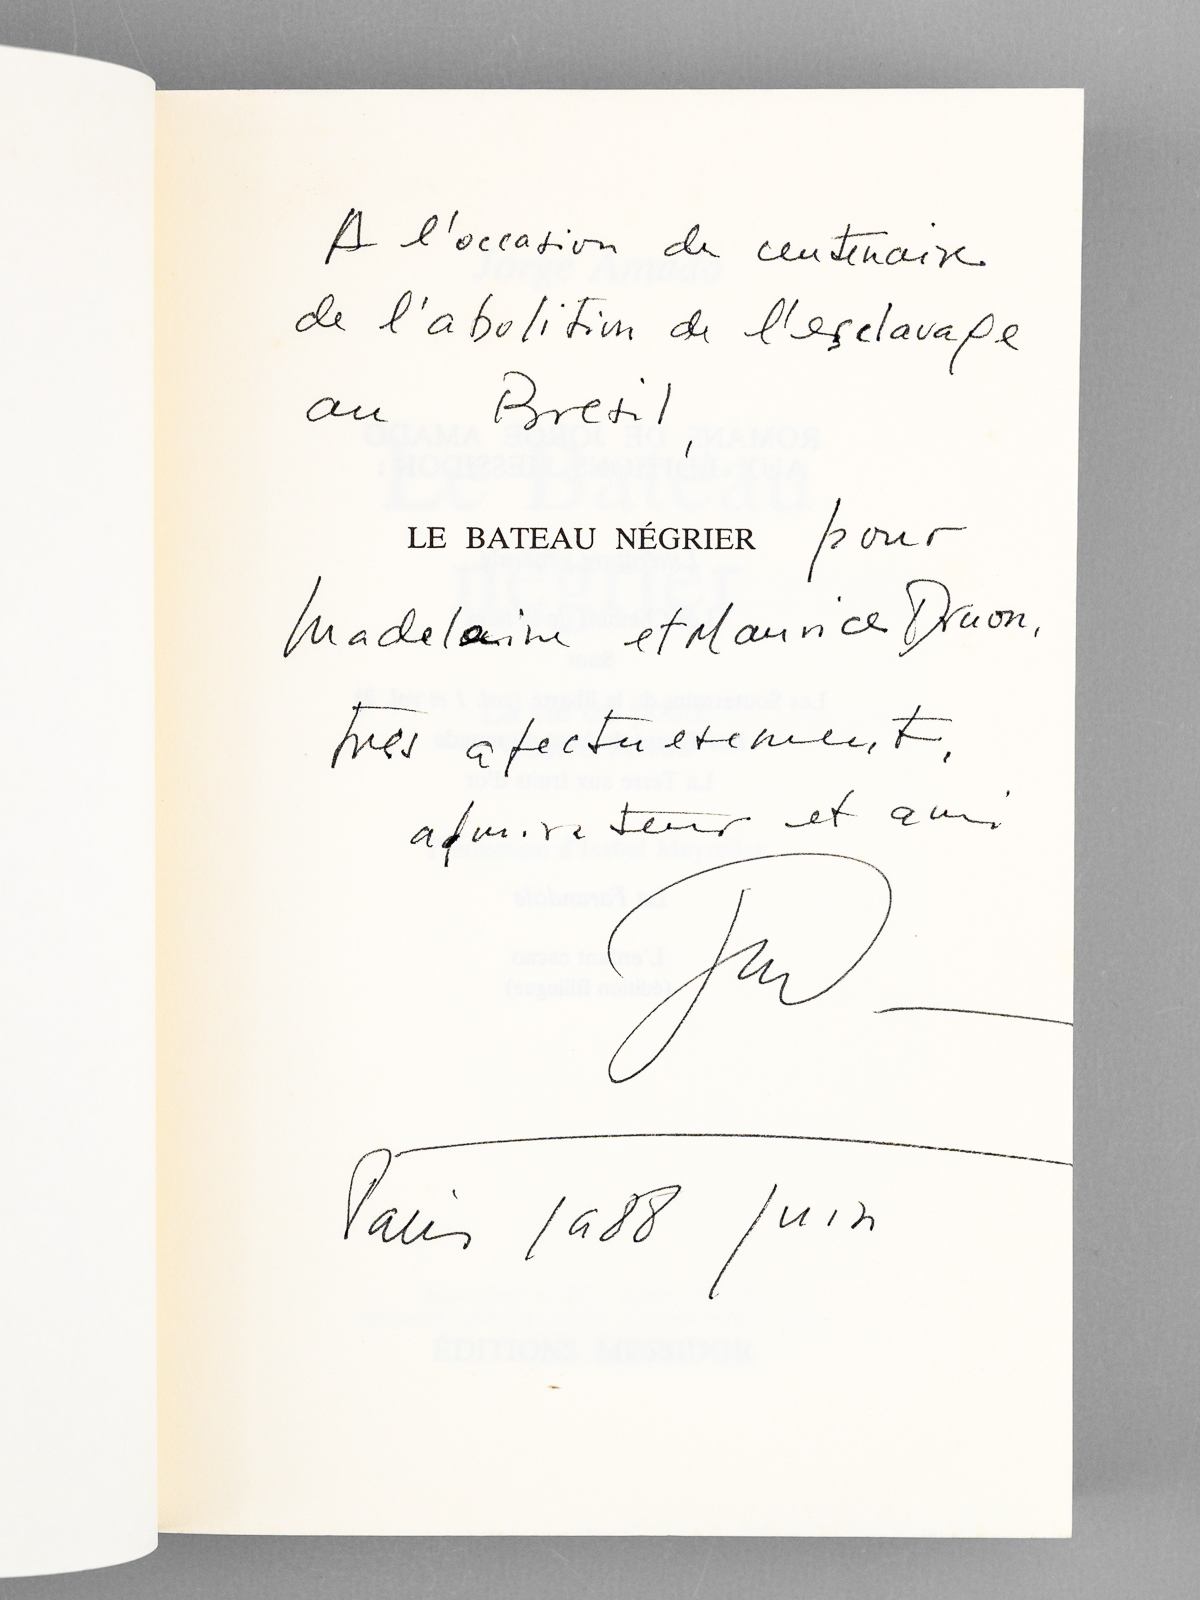 A l'occasion du centenaire
de l'abolition de l'esclavage
au Bresil,
LE BATEAU NÉGRIER pour
Madelaine et Maurice Druon,
très afectuesement,
admirateur et ami
Paris 1988 juin